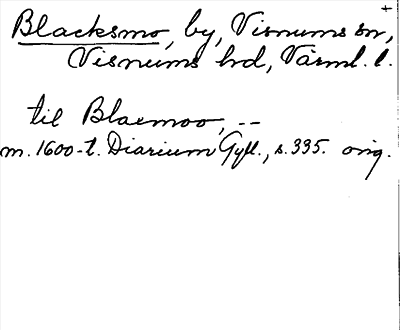 +
Blacksmo, by, Visnums sn,
Visnums hd, Värml. l.
til Blacmoo, --
m. 1600-t. Diarium Gyll., s. 335. orig.